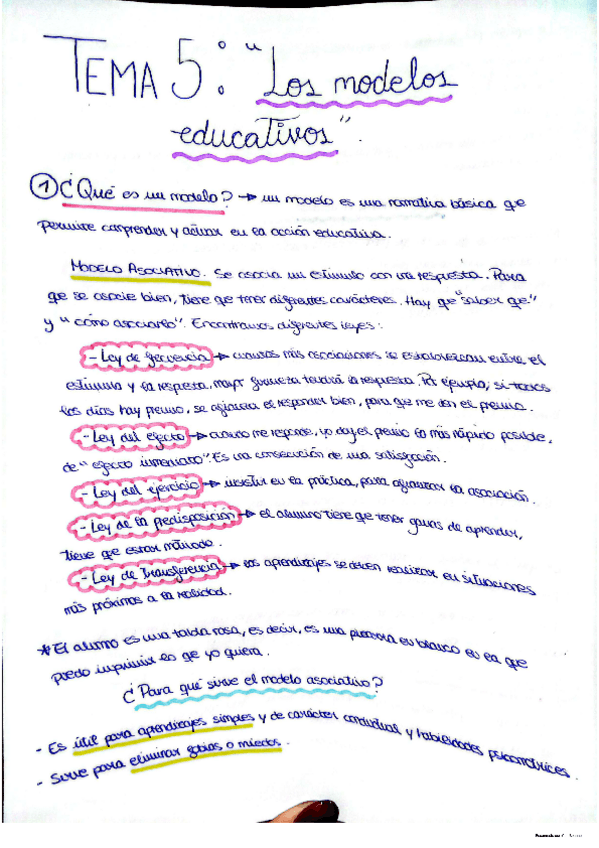 TEMA 5: "Los modelos
educativos".
① ¿Qué es un modelo? → un modelo es una normativa básica que
permite comprender y actuar en la acción educativa.
MODELO ASOCIATIVO. Se asocia un estímulo con una respuesta. Para
que se asocie bien, tiene que tener diferentes carácteres. Hay que "saber que"
y "cómo asociarlo". Encontramos diferentes leyes:
- Ley de frecuencia → cuantas más asociaciones se establezcan entre el
estímulo y la respuesta, mayor fuerza tendrá la respuesta. Por ejemplo, si todos
los días hay premio, se afianza el responder bien, para que me den el premio.
- Ley del efecto → cuando me responde, yo doy el premio lo más rápido posible,
de "efecto inmediato". Es una consecución de una satisfacción.
- Ley del ejercicio → insistir en la práctica, para afianzar la asociación.
- Ley de la predisposición → el alumno tiene que tener ganas de aprender,
tiene que estar motivado.
- Ley de Transferencia → los aprendizajes se deben realizar en situaciones
más próximas a la realidad.
* El alumno es una tabla rasa, es decir, es una pizarra en blanco en la que
puedo imprimir lo que yo quiera.
¿Para qué sirve el modelo asociativo?
- Es útil para aprendizajes simples y de carácter conductual y habilidades psicomotrices.
- Sirve para eliminar fobias o miedos.